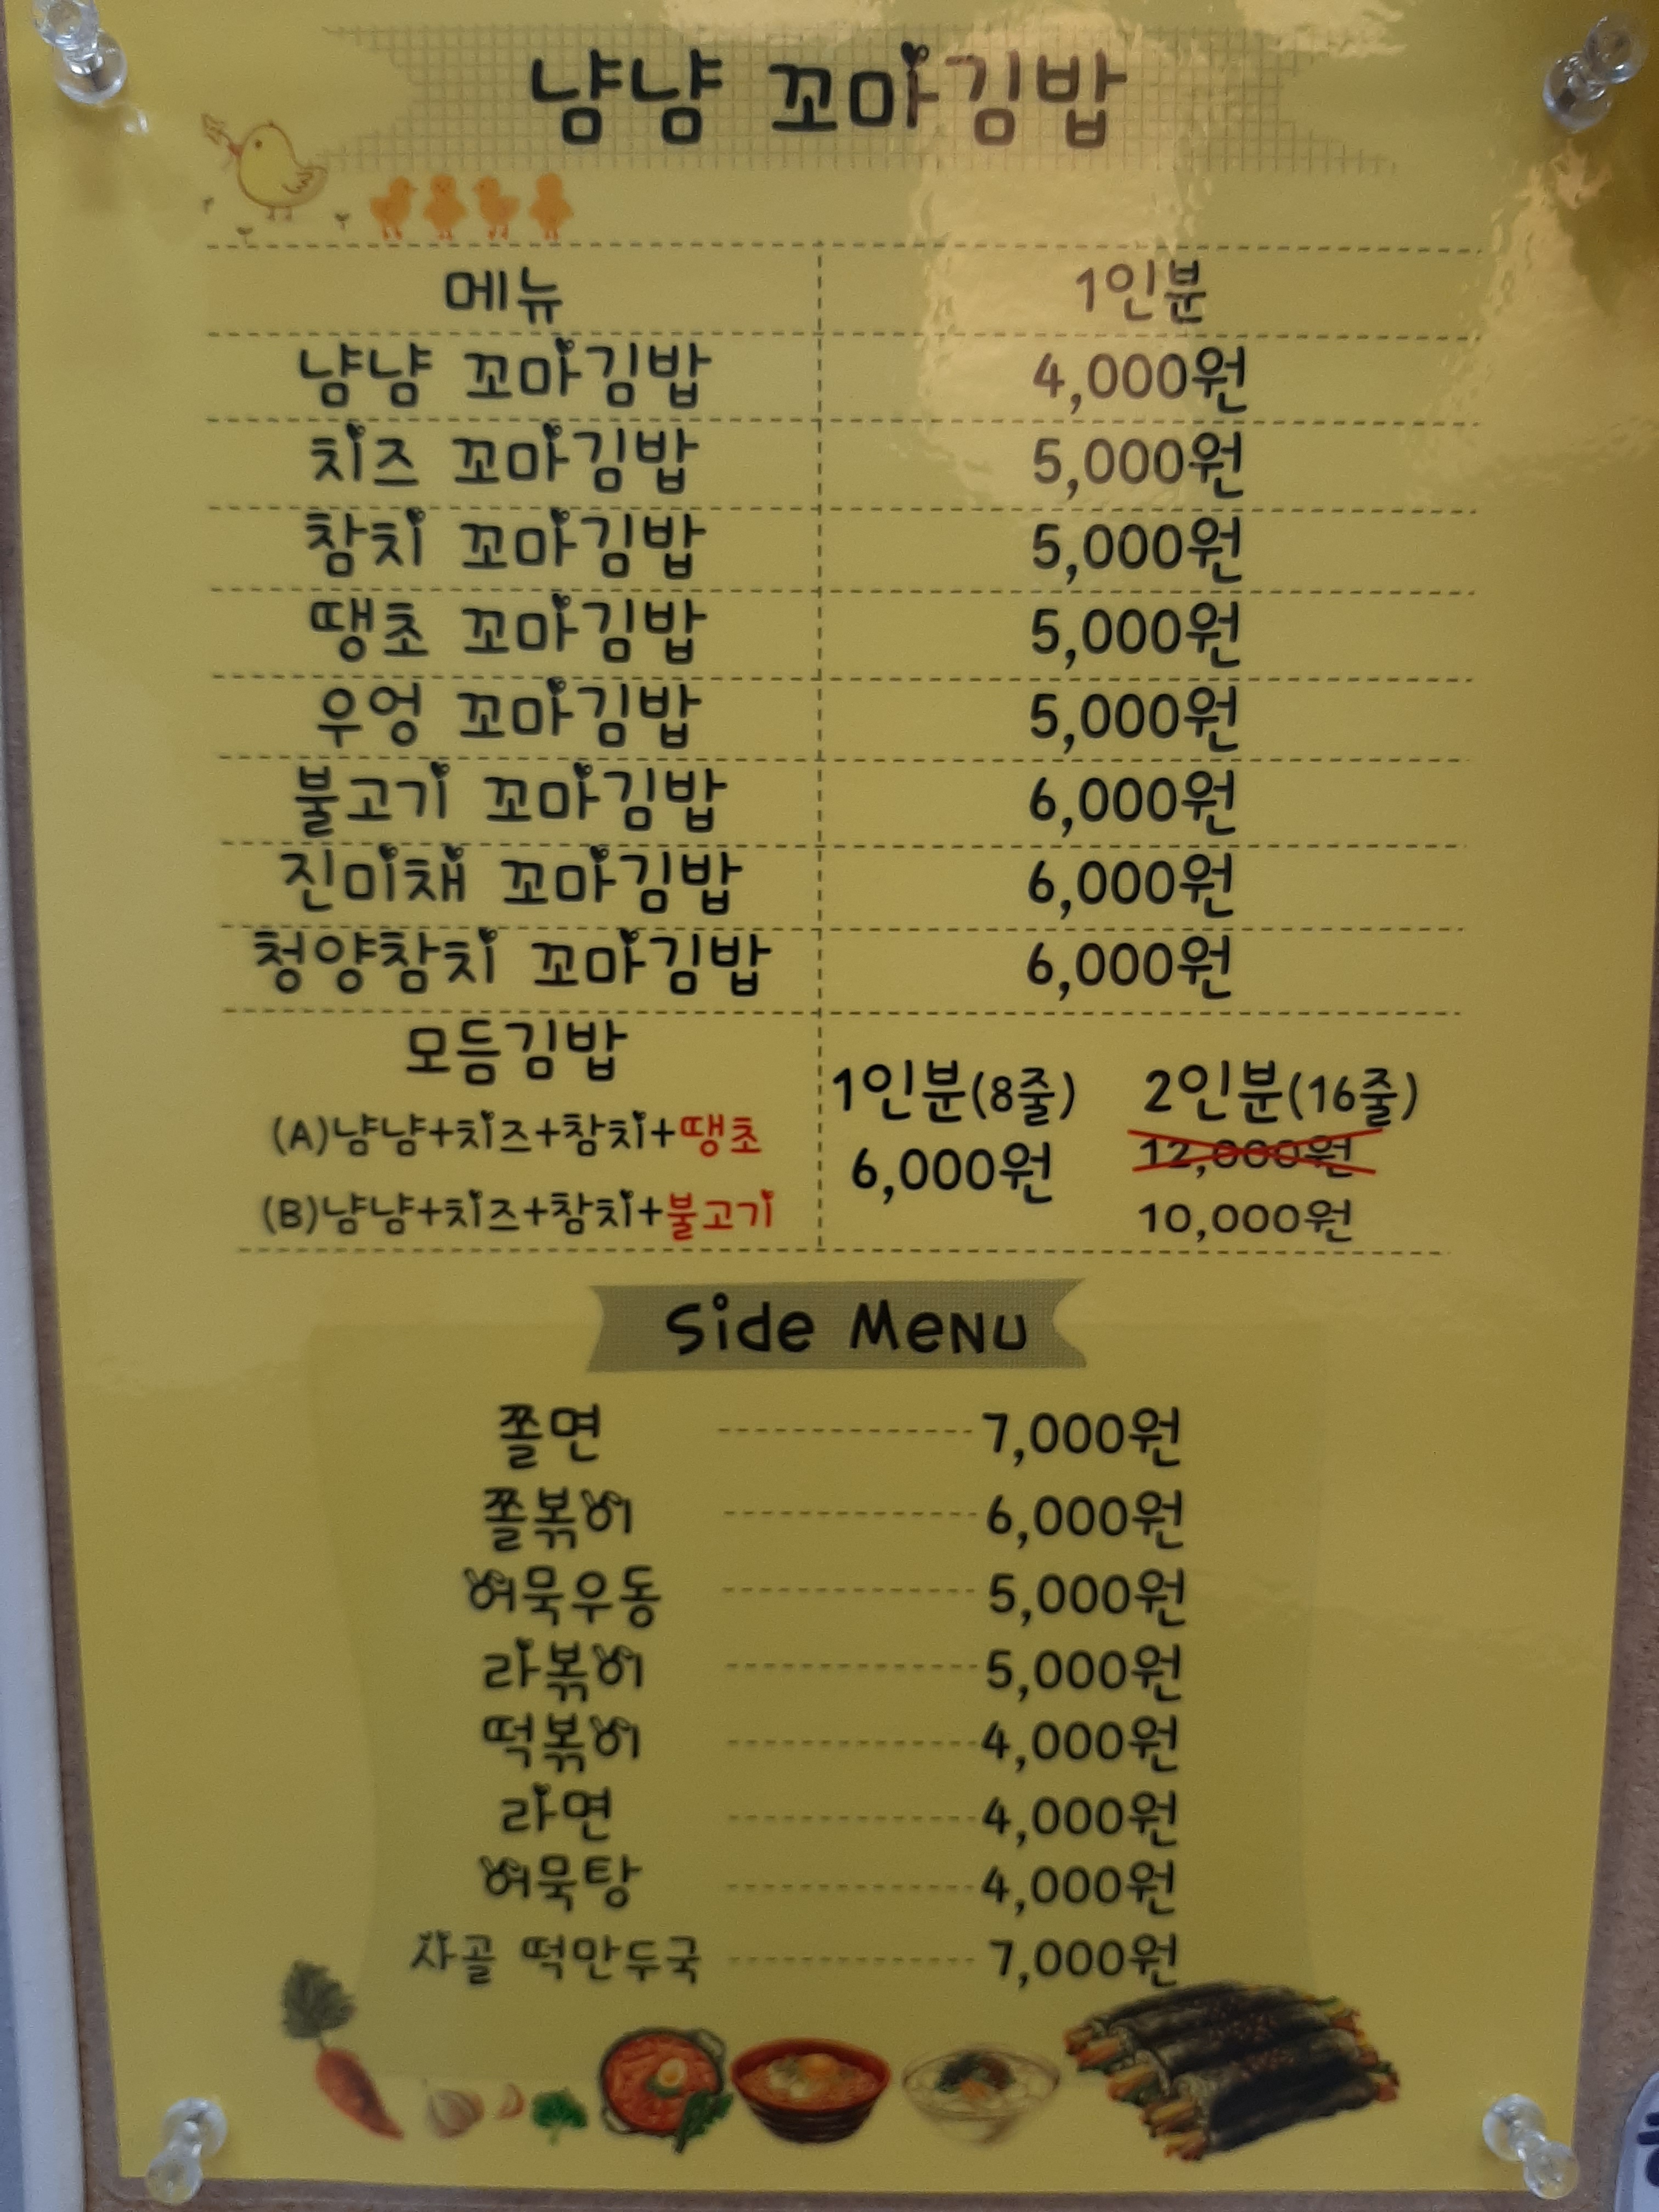 냠냠 꼬마김밥
메뉴 1인분
냠냠 꼬마김밥 4,000원
치즈 꼬마김밥 5,000원
참치 꼬마김밥 5,000원
땡초 꼬마김밥 5,000원
우엉 꼬마김밥 5,000원
불고기 꼬마김밥 6,000원
진미채 꼬마김밥 6,000원
청양참치 꼬마김밥 6,000원
모듬김밥
(A)냠냠+치즈+참치+땡초
(B)냠냠+치즈+참치+불고기
1인분(8줄) 2인분(16줄)
6,000원 12,000원
10,000원
Side Menu
쫄면 7,000원
쫄볶이 6,000원
어묵우동 5,000원
라볶이 5,000원
떡볶이 4,000원
라면 4,000원
어묵탕 4,000원
사골 떡만두국 7,000원